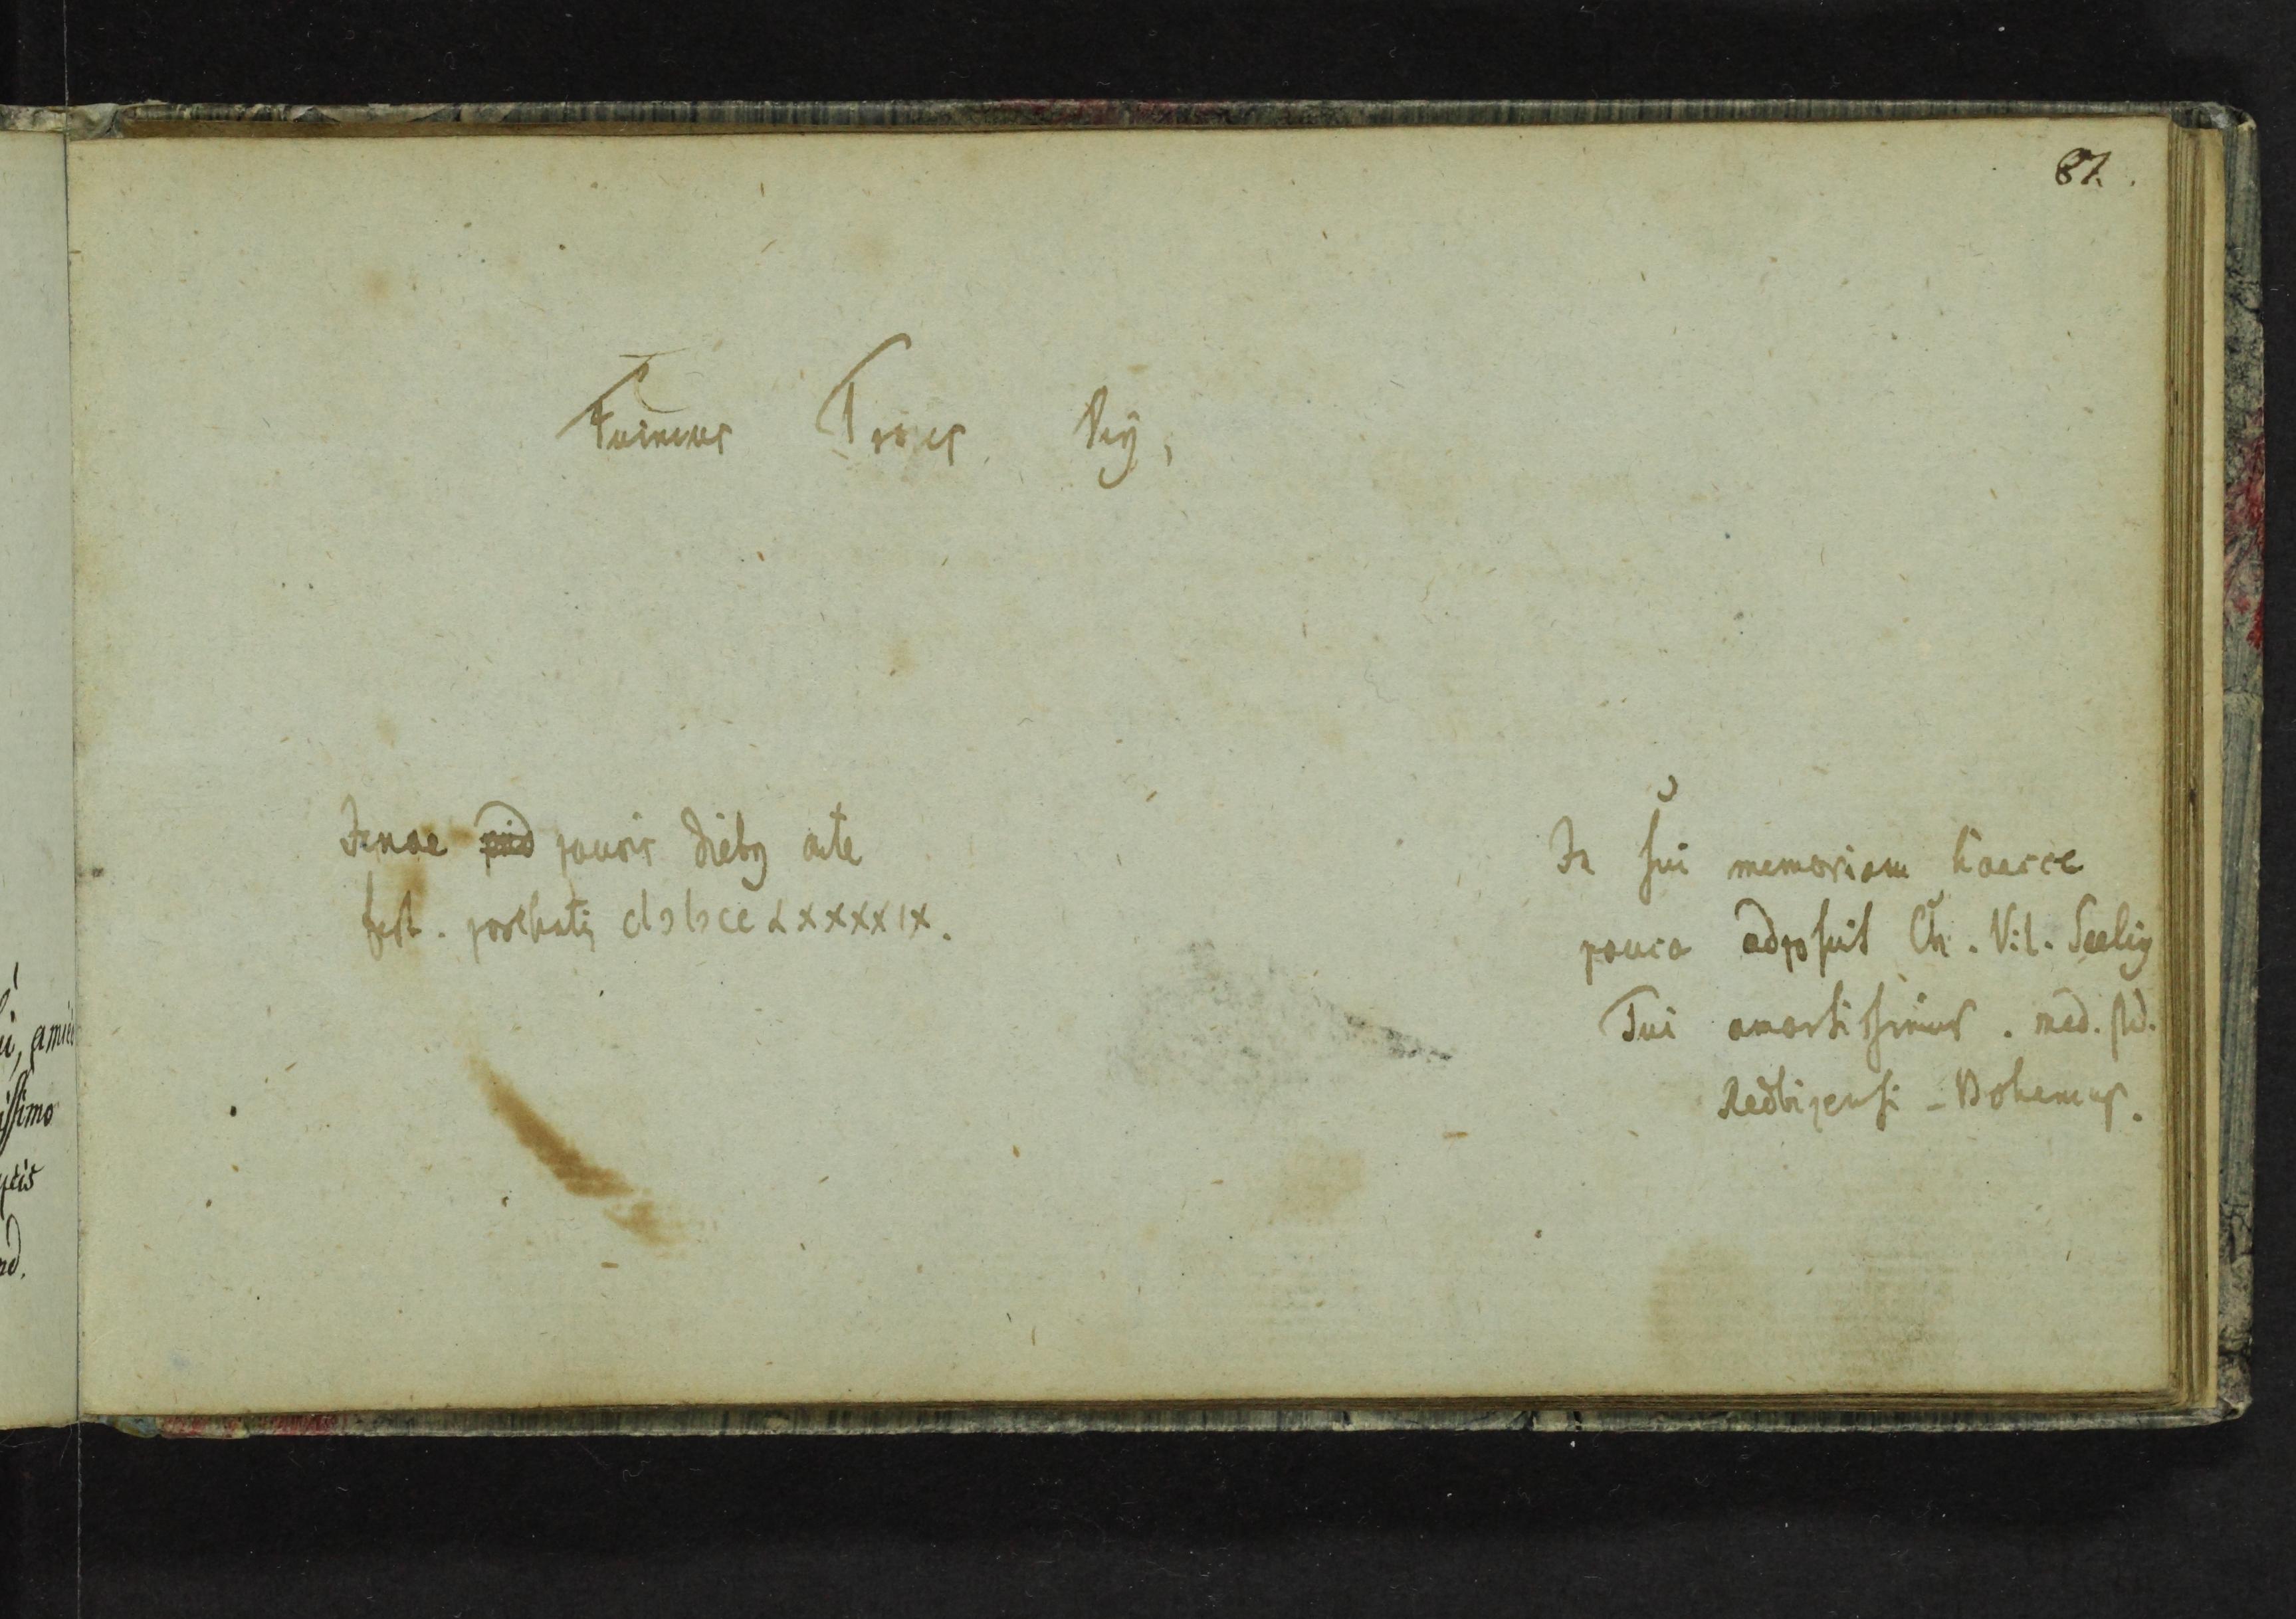 87.
Fuimus Troes
Jenae paucis dieb9 ante
fest. paschatis cIɔIɔccLXXXXIX.
In sui memoriam haecce
pauca adposuit Ch. Vil. Seelig
Tui amantissimus. med. std.
- Bohemus.
ui, amic
issimo